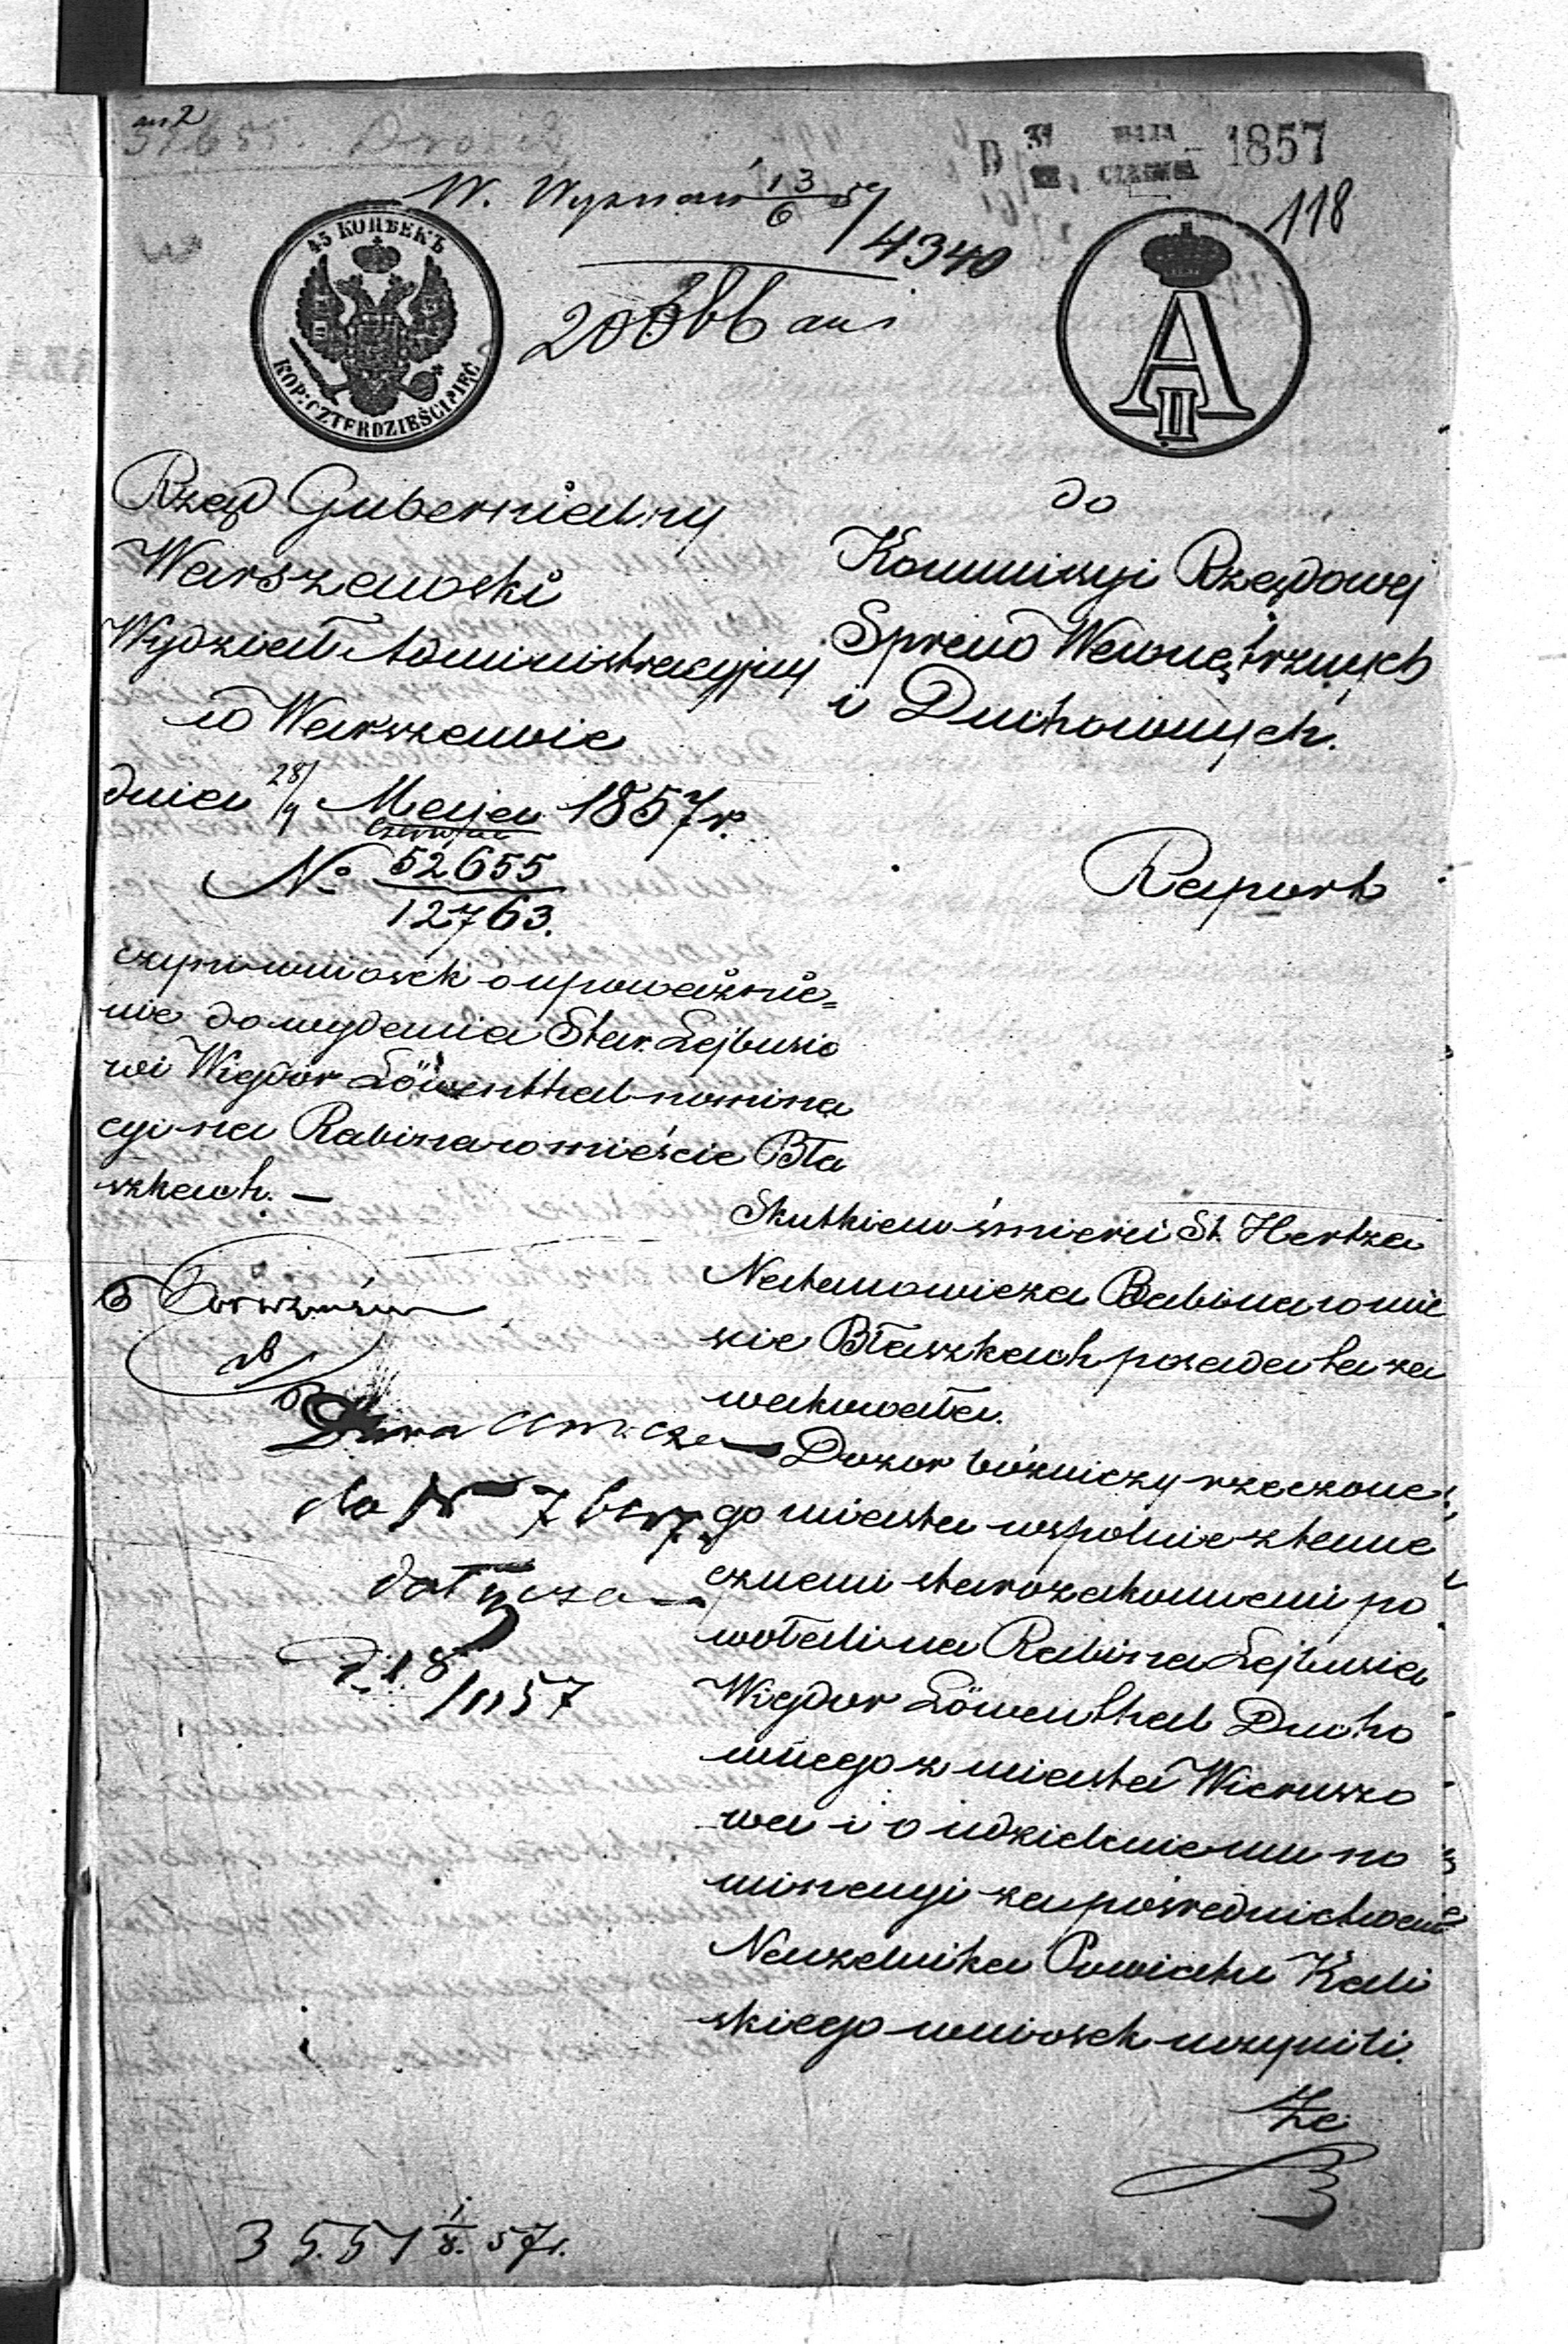 W. Wyznań 13/6 57/4340
1857
118
45 КОПѢЕКЪ
KOP: CZTERDZIEŚCI PIĘĆ
A II
Rząd Gubernialny
Warszawski
Wydział Administracyjny
w Warszawie
dnia 28/9 Maja/Czerwca 1857 r.
No 52655/12763.
czyni wniosek o upoważnie=
nie do wydania Star. Lejbusio
wi Wigdor Löwenthal nomina
cyi na Rabina w mieście Bła
szkach. —
do
Kommisyi Rządowej
Spraw Wewnętrznych
i Duchownych.
Raport
Skutkiem śmierci St. Hertza
Natanowicza Rabina w mie
ście Błaszkach posada ta za
wakowała.
Dozor bóźniczy rzeczone
go miasta wspolnie z tame
cznemi starozakonnemi po
wołali na Rabina Lejbusia
Wigdor Löwenthal Ducho
wnego z miasta Wieruszo
wa i o udzielenie mu no
minacyi za pośrednictwem
Naczelnika Powiatu Kali
skiego wniosek uczynili.
Ze
do N 7
dołącza
35.51 1/8. 57 r.